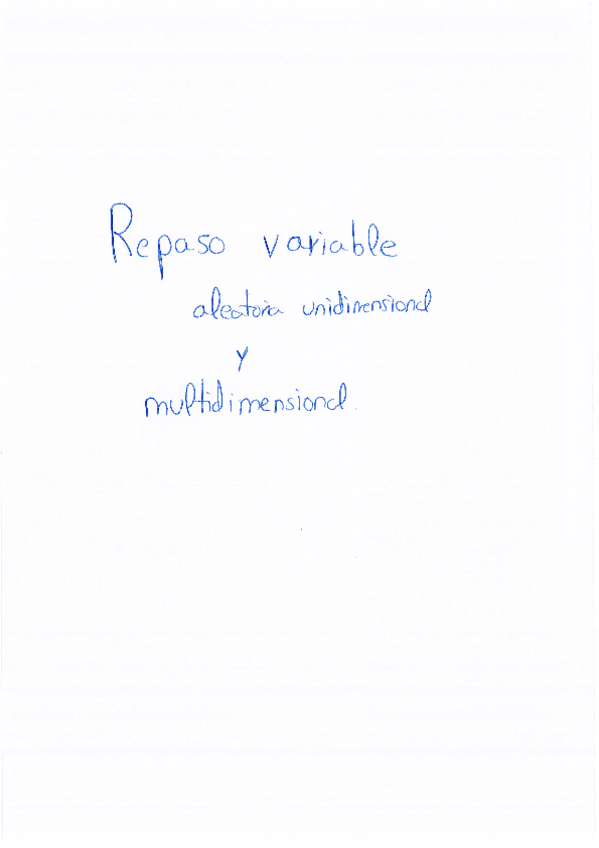 Repaso variable
aleatoria unidimensional
y
multidimensional.